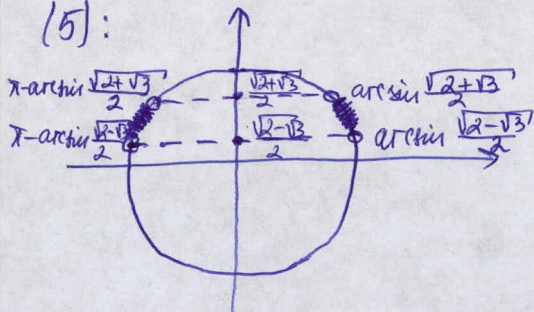 (5):
π-arcsin √(2+√3)/2 √(2+√3)/2 arcsin √(2+√3)/2
π-arcsin √(2-√3)/2 √(2-√3)/2 arcsin √(2-√3)/2